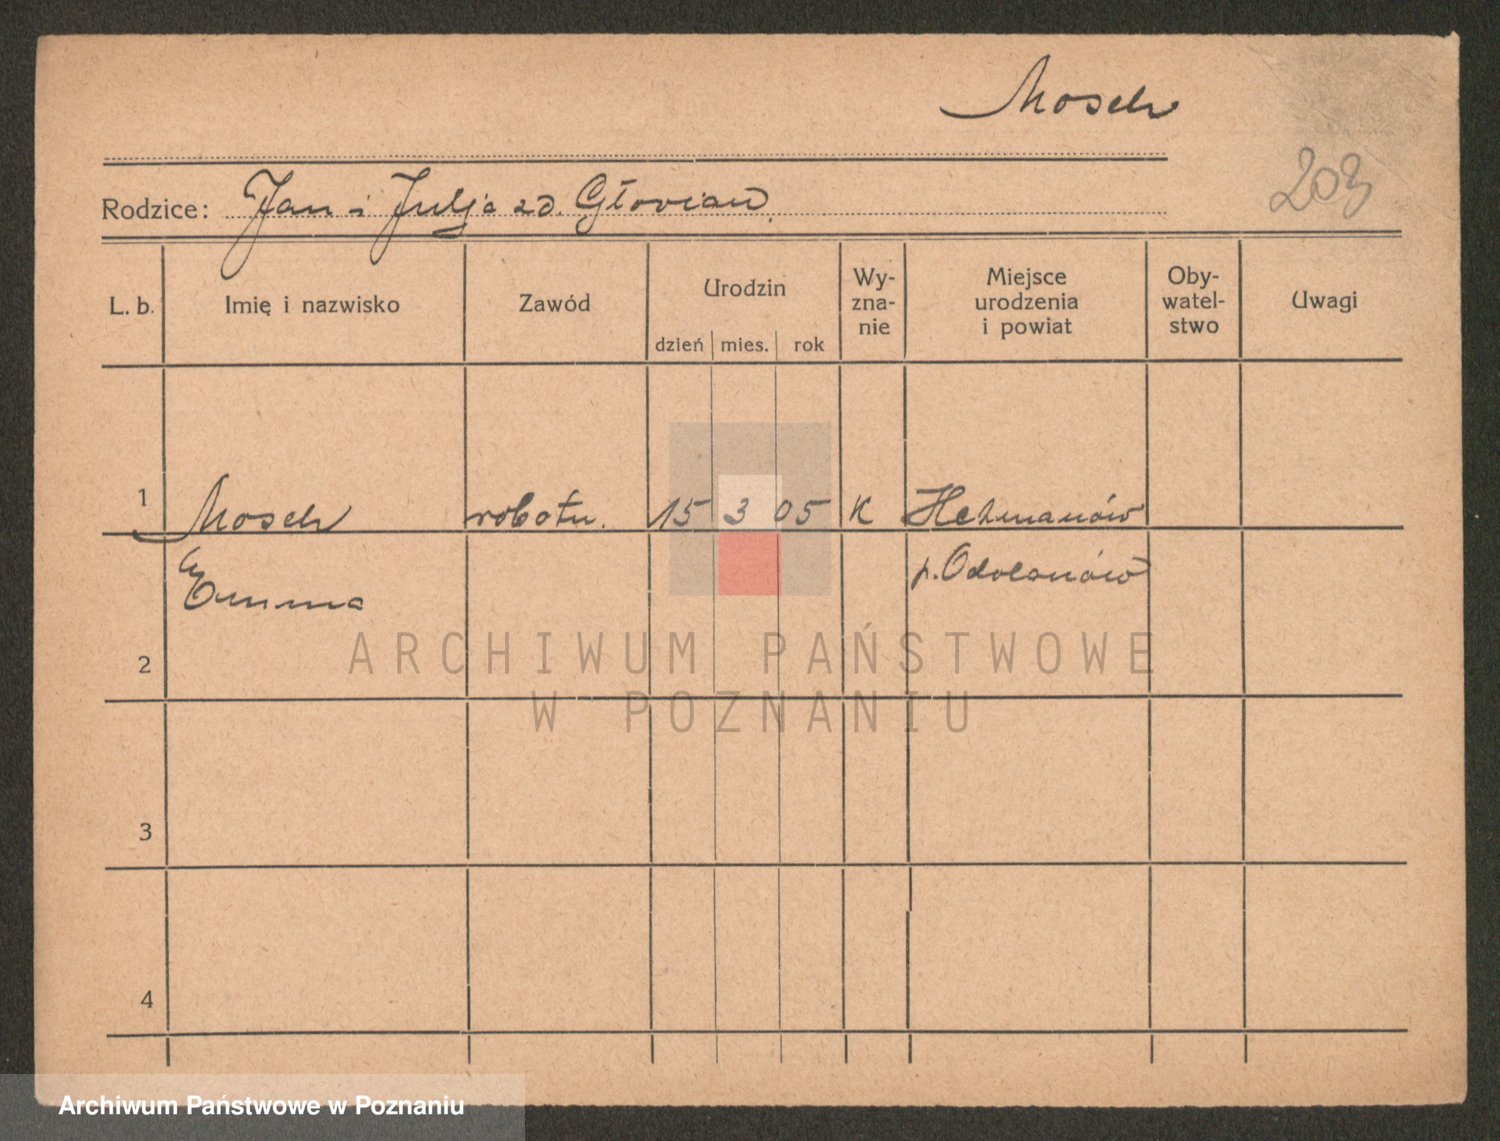 Mosch
203
Rodzice: Jan i Julja zd. Głovian
L. b. Imię i nazwisko Zawód Urodzin Wy- Miejsce Oby- Uwagi
zna- urodzenia watel-
nie i powiat stwo
dzień mies. rok
1 Mosch robotn. 15 3 05 K Hetmanów
Emma p. Odolanów
2
ARCHIWUM PAŃSTWOWE
W POZNANIU
3
4
Archiwum Państwowe w Poznaniu